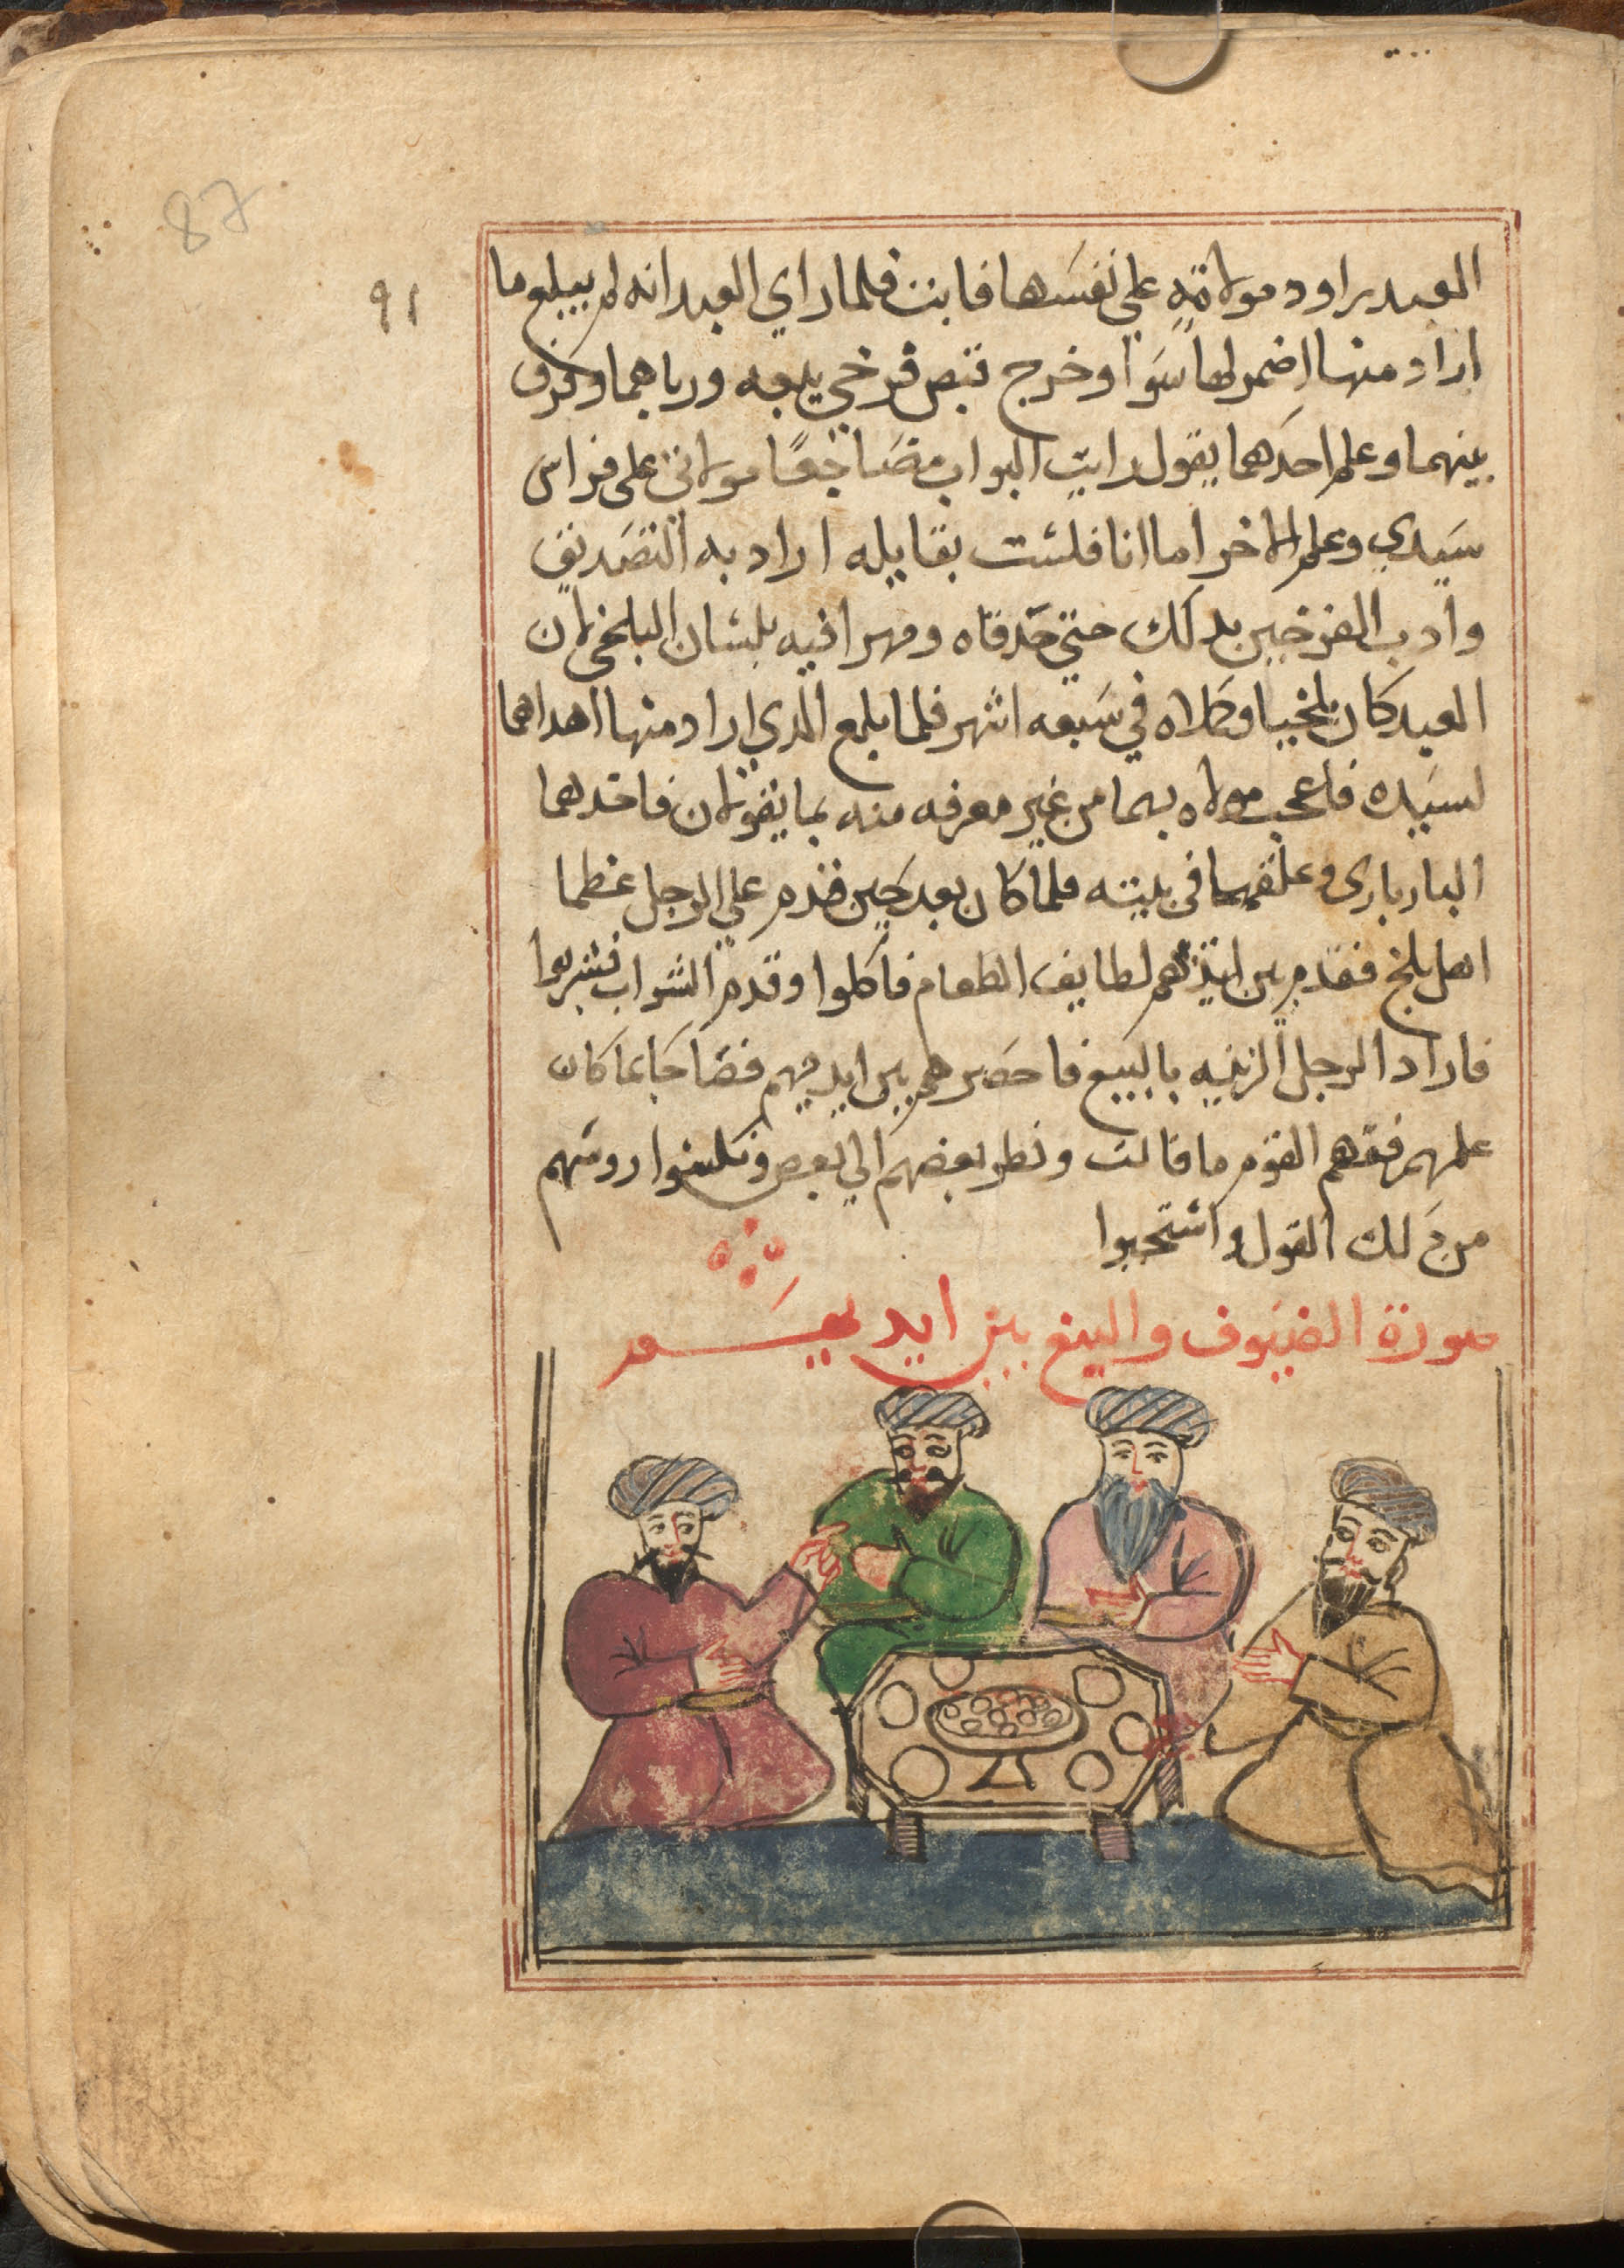 87
٩١
العبد يراود مولاته علي نفسها فابت فلما راي العبد انه لم يبلغ ما
اراد منها اضمر لها سوا وخرج تبص فرخي ببغه ورباهما وفرق
بينهما وعلم احدهما يقول رايت البواب مضاجعًا مولاتي على فراش
سيدي وعلم الاخر اما انا فلست بقايله اراد به التصديق
وادب الفرخين بدلك حتي حدقاه ومهرا فيه بلسان البلخي لان
العبد كان بلخيا وكلاه في سبعه اشهر فلما بلغ الدي اراد منها اهداهما
لسيده فاعجب مولاه بهما من غير معرفه منه بما يقولان فاخدهما
البازيارى وعلقهما فى بيته فلما كان بعد حين قدم علي الرجل عظما
اهل بلخ فقدم بين ايديهم لطايف الطعام فاكلوا وقدم الشراب فشربوا
فاراد الرجل الزينه بالببغ فاحضرهم بين ايديهم فصاحا بما كان
علمهم ففهم القوم ما قالت ونظر بعضهم الي بعض ونكسوا روسهم
من دلك القول واستحيوا
صورة الضيوف والببغ بين ايديهم